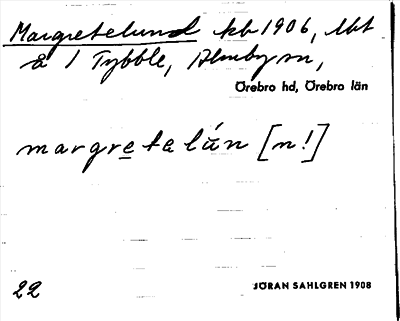 Margretelund kb 1906, lht
å 1 Tybble, Almby sn,
Örebro hd, Örebro län
margretalún [n!]
22
JÖRAN SAHLGREN 1908